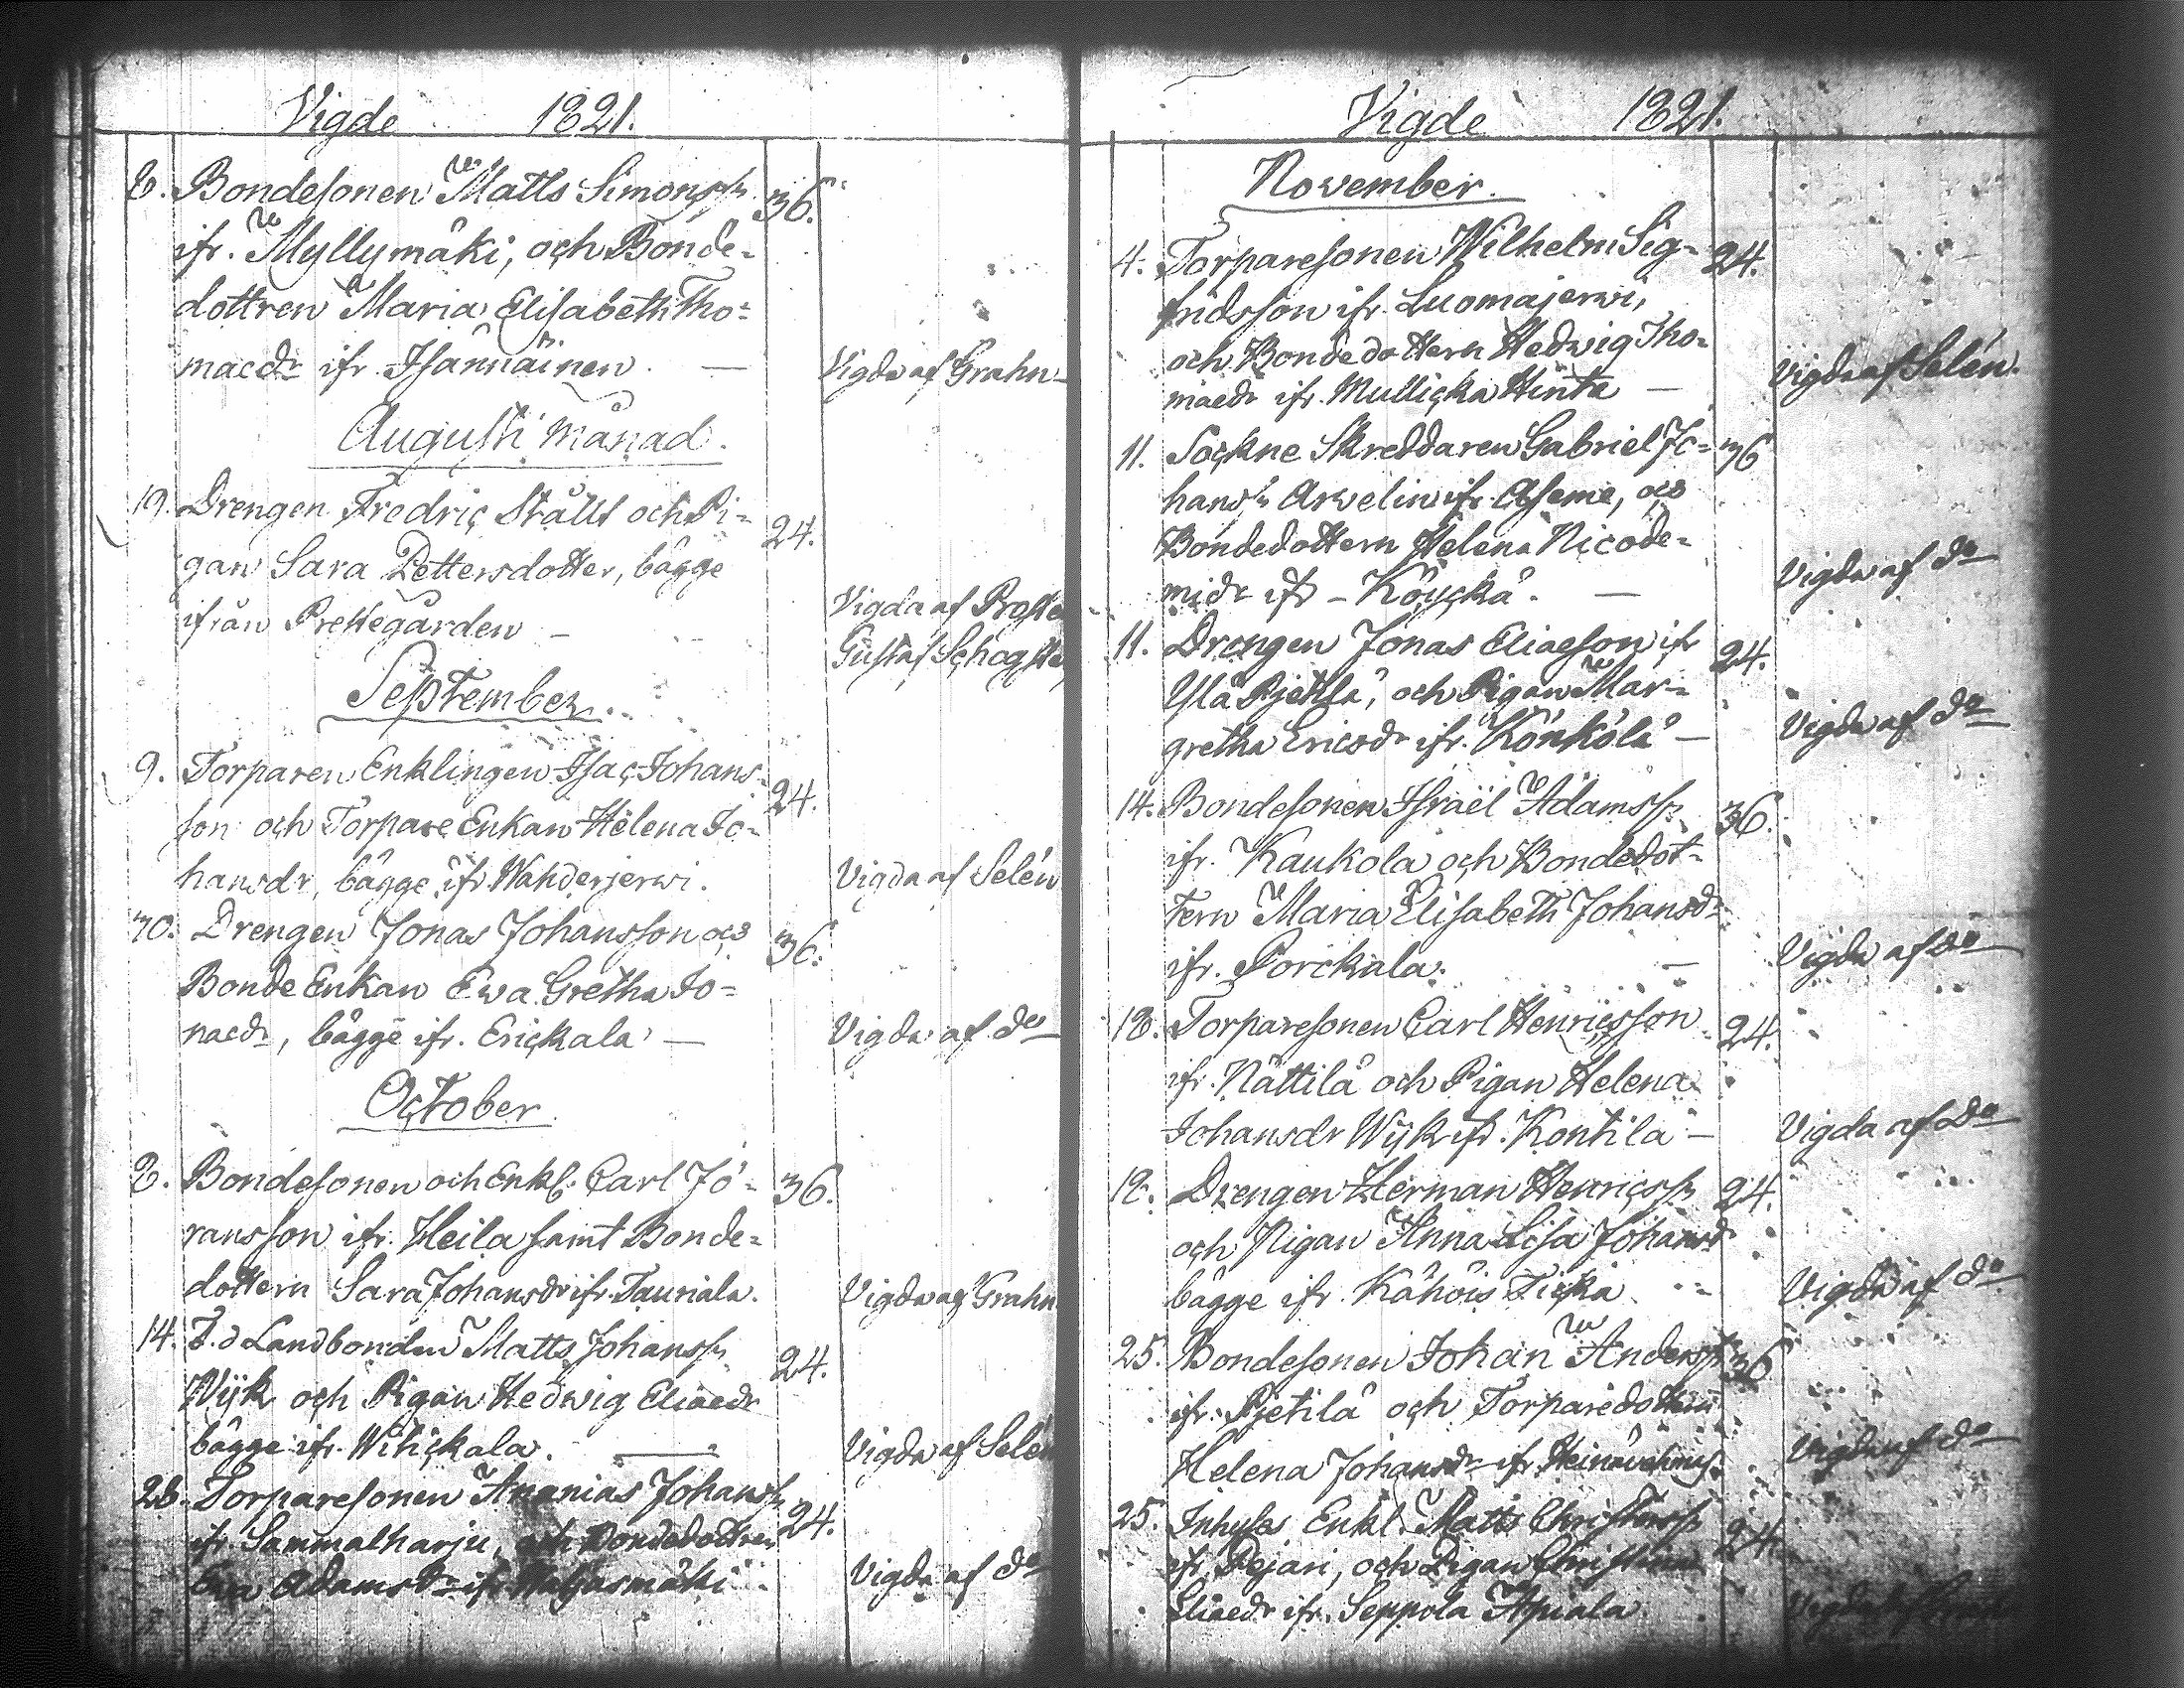 Vigde 1821.
8. Bondesonen Matts Simonss. 36.
ifr. Myllymäki, och Bonde-
dottren Maria Elisabeth Tho-
maedr ifr Isännäinen. — Vigda af Grahn
Augusti månad.
19. Drengen Fredric Ståll och Pi- 24.
gan Sara Pettersdotter, bägge
ifrån Prestegården — Vigda af Proste
Gustaf
September.
9. Torparen Enklingen Isac Johans- 24.
son och Torpare Enkan Helena Jo-
hansdr, bägge ifr Wahderjerwi. Vigda af Selén
30. Drengen Jonas Johansson och 36.
Bonde Enkan Ewa Gretha Jo-
naedr, bägge ifr. Erickala — Vigda af do
October.
8. Bondesonen och Enkl. Carl Jö- 36.
ransson ifr. Heila samt Bonde-
dottern Sara Johansdr ifr. Tauriala. Vigda af Grahn
14. F.d Landbonden Matts Johanss. 24.
Wijk och Pigan Hedwig Eliaedr
bägge ifr. Wihickala. — Vigda af Selén
28. Torparesonen Ananias Johanss. 24.
ifr Sammalharju, och Bondedottren
Ewa Adamsdr ifr Vigda af do
Vigde 1821.
November.
4. Torparesonen Wilhelm Sig- 24.
fridsson ifr. Luomajerwi,
och Bondedottern Hedwig Tho-
maedr ifr. Mullicka Hinta — Vigda af Selén.
11. Sockne Skreddaren Gabriel Jo- 36
hanss. Arwelin ifr. och
Bondedottern Helena Nicode-
midr ifr — Köyckä. — Vigda af do
11. Drengen Jonas Eliaeson ifr 24.
Ylä Pjetilä, och Pigan Mar-
gretha Ericsdr ifr. Könkölä — Vigda af do
14. Bondesonen Israël Adamss. 36.
ifr. Kaukola och Bondedot-
tern Maria Elisabeth Johansdr
ifr. Porckala. — Vigda af do
18. Torparesonen Carl Henricsson 24.
ifr. Nättilä och Pigan Helena
Johansdr Wijk ifr. Kontila — Vigda af do
18. Drengen Herman Henricss. 24.
och Pigan Anna Lisa Johansd
bägge ifr. Kähöis Ticka Vigda af do
25. Bondesonen Johan Anderss. 36
ifr. Pjetilä och Torparedottern
Helena Johansdr ifr. Vigda af do
25. Inhyses Enkl. Matts Christerss. 24.
ifr. Pejari, och Pigan Christina
Eliaedr ifr. Seppola Apiala Vigda